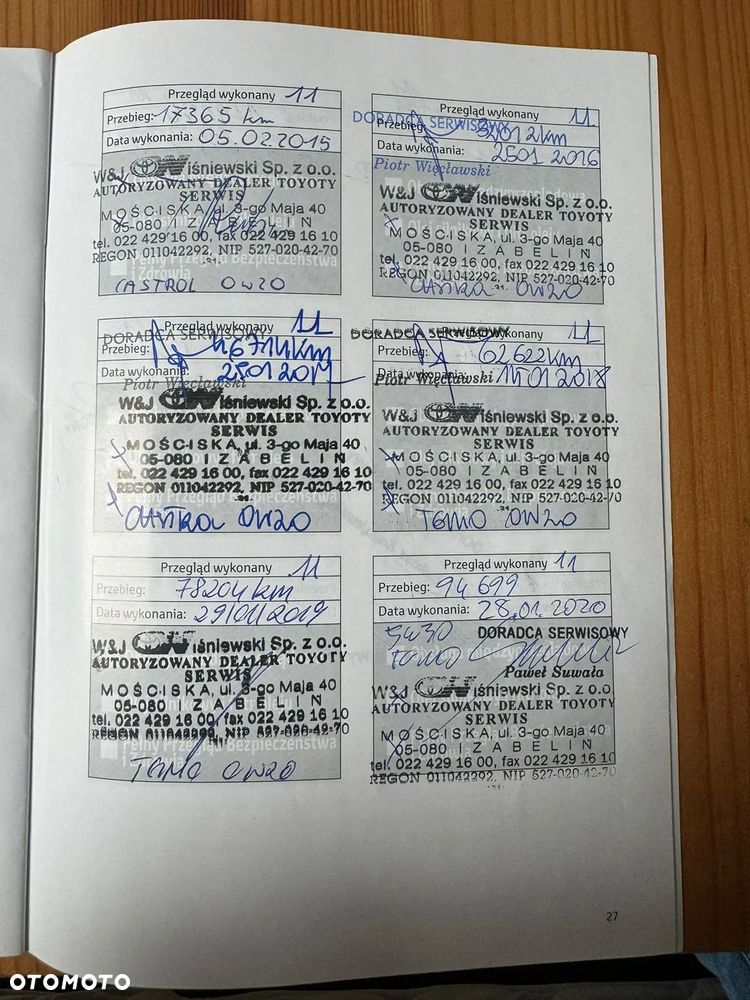 Przegląd wykonany 11
Przebieg: 17365 km
Data wykonania: 05.02.2015
W&J Wiśniewski Sp. z o.o.
AUTORYZOWANY DEALER TOYOTY
SERWIS
MOŚCISKA, ul. 3-go Maja 40
05-080 IZABELIN
tel. 022 429 16 00, fax 022 429 16 10
REGON 011042292, NIP 527-020-42-70
Pełny Przegląd Bezpieczeństwa
i Zdrowia
-31-
CASTROL 0W20
Przegląd wykonany 11
DORADCA SERWISOWY
Przebieg: 32012km
Data wykonania: 2501 2016
Piotr Więcławski
W&J Wiśniewski Sp. z o.o.
AUTORYZOWANY DEALER TOYOTY
SERWIS
MOŚCISKA, ul. 3-go Maja 40
05-080 IZABELIN
tel. 022 429 16 00, fax 022 429 16 10
REGON 011042292, NIP 527-020-42-70
-31-
0W20
Przegląd wykonany 11
DORADCA SERWISOWY
Przebieg: 46711km
Data wykonania: 25012017
Piotr Więcławski
W&J Wiśniewski Sp. z o.o.
AUTORYZOWANY DEALER TOYOTY
SERWIS
MOŚCISKA, ul. 3-go Maja 40
05-080 IZABELIN
tel. 022 429 16 00, fax 022 429 16 10
REGON 011042292, NIP 527-020-42-70
-31-
0W20
Przegląd wykonany 11
DORADCA SERWISOWY
Przebieg: 62622km
Data wykonania: 11012018
Piotr Więcławski
W&J Wiśniewski Sp. z o.o.
AUTORYZOWANY DEALER TOYOTY
SERWIS
MOŚCISKA, ul. 3-go Maja 40
05-080 IZABELIN
tel. 022 429 16 00, fax 022 429 16 10
REGON 011042292, NIP 527-020-42-70
-31-
0W20
Przegląd wykonany 11
Przebieg: 78204km
Data wykonania: 29/01/2019
W&J Wiśniewski Sp. z o.o.
AUTORYZOWANY DEALER TOYOTY
SERWIS
MOŚCISKA, ul. 3-go Maja 40
05-080 IZABELIN
tel. 022 429 16 00, fax 022 429 16 10
REGON 011042292, NIP 527-020-42-70
Pełny Przegląd Bezpieczeństwa
i Zdrowia
0W20
Przegląd wykonany 11
Przebieg: 94 699
Data wykonania: 28.01.2020
5W30 DORADCA SERWISOWY
Paweł Suwała
W&J Wiśniewski Sp. z o.o.
AUTORYZOWANY DEALER TOYOTY
SERWIS
MOŚCISKA, ul. 3-go Maja 40
05-080 IZABELIN
tel. 022 429 16 00, fax 022 429 16 10
REGON 011042292, NIP 527-020-42-70
-31-
27
OTOMOTO